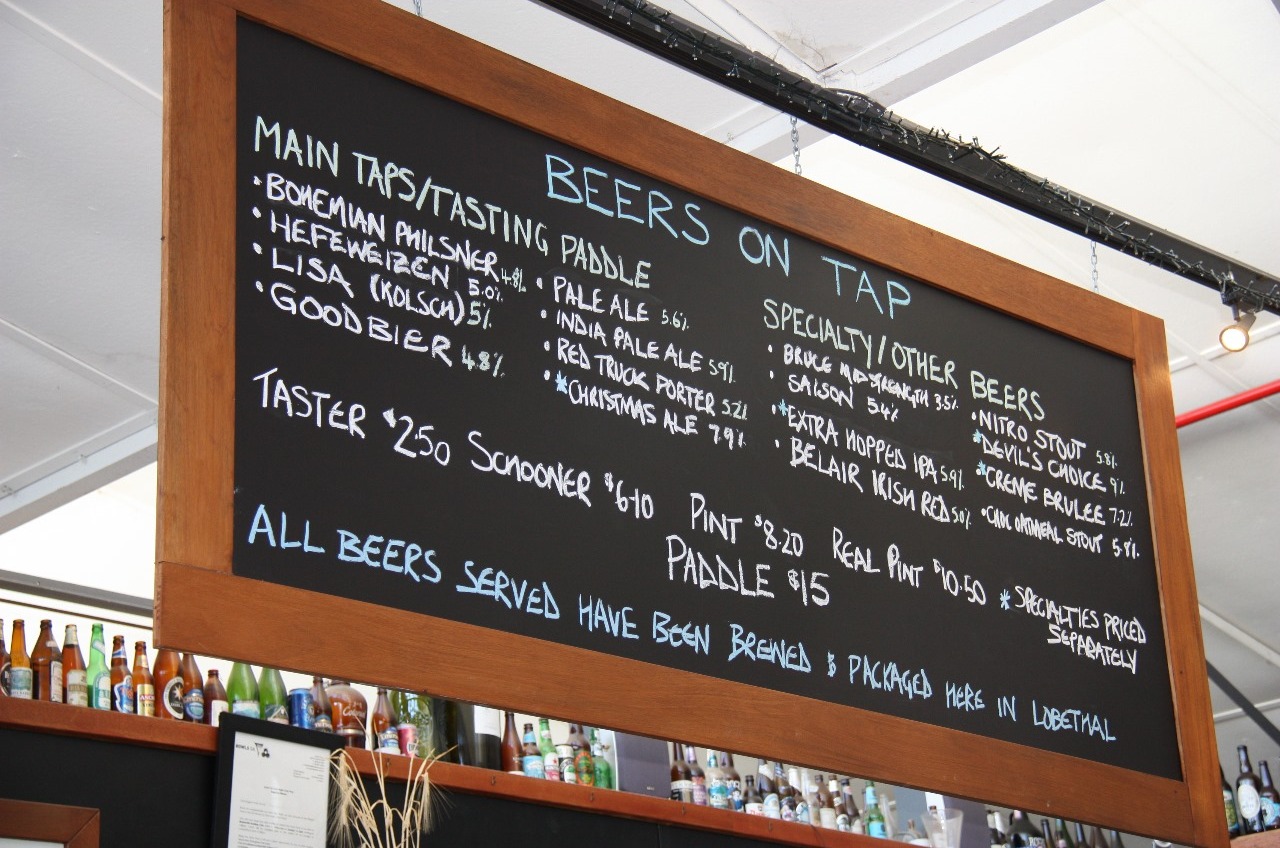 BEERS ON TAP
MAIN TAPS/TASTING PADDLE
• BOHEMIAN PHILSNER 4.8%
• HEFEWEIZEN 5.0%
• LISA (KOLSCH) 5%
• GOOD BIER 4.8%
• PALE ALE 5.6%
• INDIA PALE ALE 5.9%
• RED TRUCK PORTER 5.2%
• *CHRISTMAS ALE 7.9%
SPECIALTY/OTHER BEERS
• BRUCE MIDSTRENGTH 3.5%
• SAISON 5.4%
• *EXTRA HOPPED IPA 5.9%
• BELAIR IRISH RED 5.0%
• NITRO STOUT 5.8%
*DEVIL'S CHOICE 9%
*CREME BRULEE 7.2%
• CHOC OATMEAL STOUT
TASTER $2.50 SCHOONER $6.10 PINT $8.20 REAL PINT $10.50 * SPECIALTIES PRICED
SEPARATELY
PADDLE $15
ALL BEERS SERVED HAVE BEEN BREWED & PACKAGED HERE IN LOBETHAL